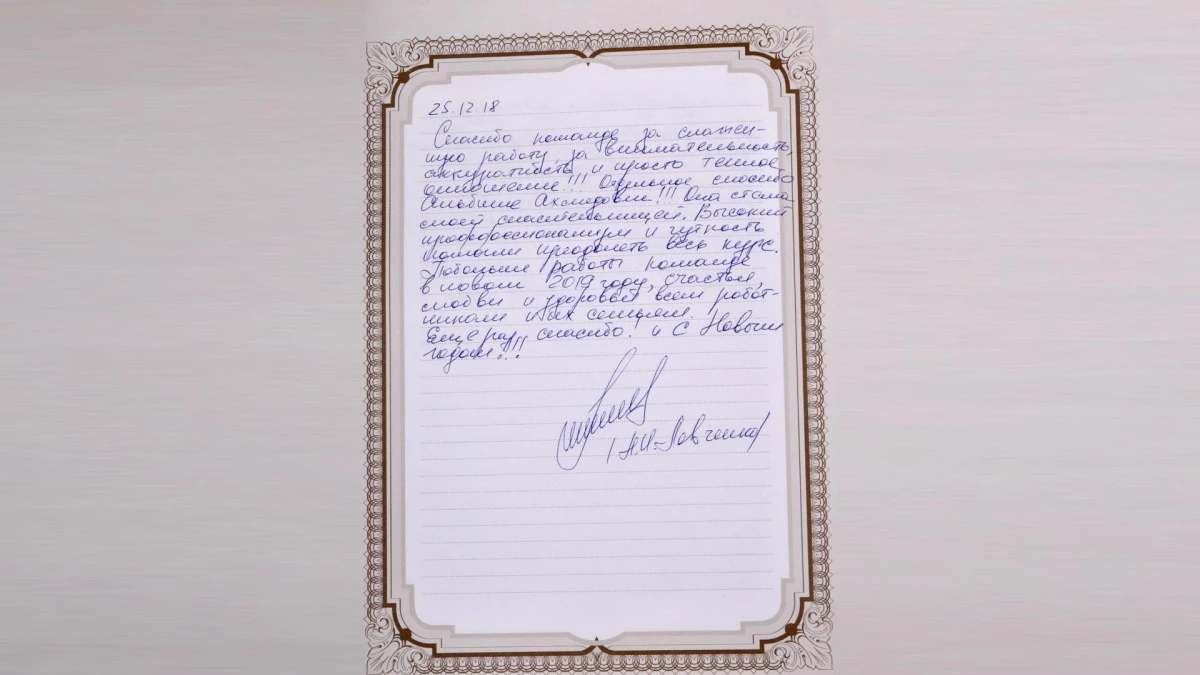 25.12.18
Спасибо команде за слажен-
ную работу, за внимательность,
аккуратность и просто теплое
отношение!!! Отдельное спасибо
Альбине Ахмедовне!!! Она стала
моей спасительницей. Высокий
профессионализм и чуткость
помогли преодолеть весь курс.
Побольше работы команде
в новом 2019 году, счастья,
любви и здоровья всем работ-
никам и их семьям!
Еще раз, спасибо! и С Новым
годом!!!